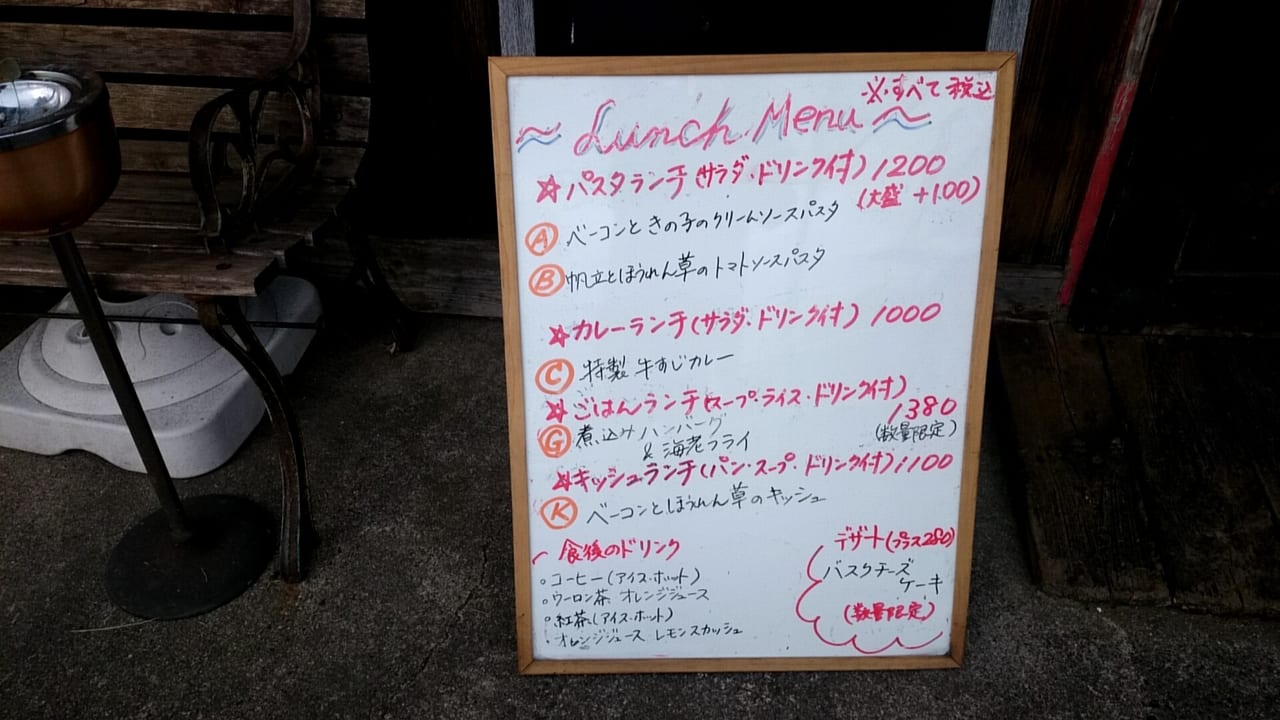 ※すべて税込
~ Lunch Menu ~
☆パスタランチ(サラダ・ドリンク付)1200
(大盛 +100)
Ⓐ ベーコンときの子のクリームソースパスタ
Ⓑ 帆立とほうれん草のトマトソースパスタ
☆カレーランチ(サラダ・ドリンク付)1000
Ⓒ 特製 牛すじカレー
☆ごはんランチ(スープ・ライス・ドリンク付)
1380
Ⓖ 煮込みハンバーグ
& 海老フライ
(数量限定)
☆キッシュランチ(パン・スープ・ドリンク付)1100
Ⓚ ベーコンとほうれん草のキッシュ
食後のドリンク
・コーヒー(アイス・ホット)
・ウーロン茶 オレンジジュース
・紅茶(アイス・ホット)
・オレンジジュース レモンスカッシュ
デザート(プラス280)
バスクチーズ
ケーキ
(数量限定)